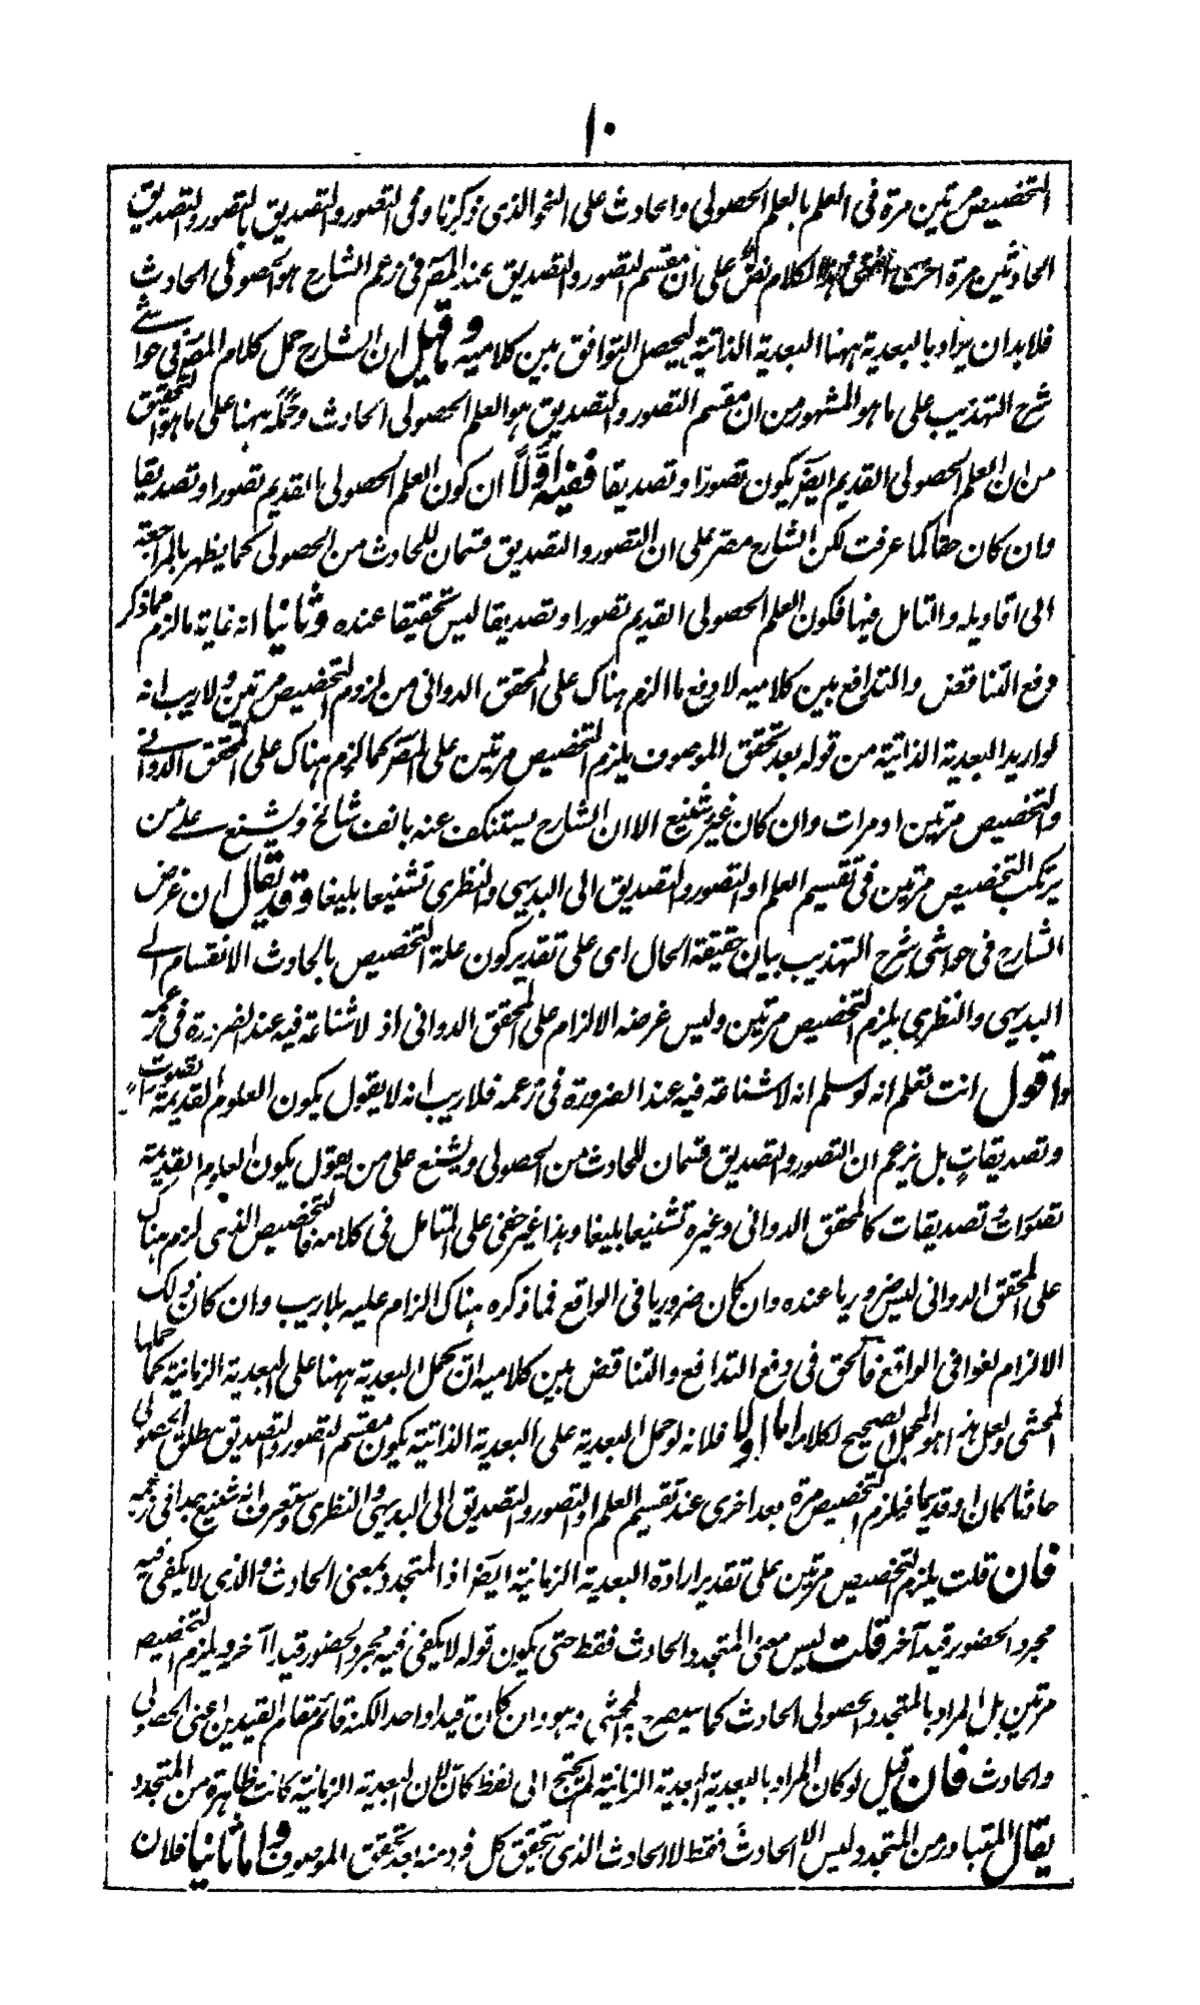 ١٠
التخصيص مرتين مرة فى العلم بالعلم الحصولى والحادث على النحو الذى ذكرنا وفى التصور والتصديق بالتصور والتصديق
الحادثين مرة اخرى الكلام نص على ان مقسم التصور والتصديق عند المصر فى زعم الشارح هو الحصولى الحادث
فلا بد ان يراد بالبعدية ههنا البعدية الذاتية ليحصل التوافق بين كلاميه وما قيل ان الشارح حمل كلام المصر فى حواشى
شرح التهذيب على ما هو المشهور من ان مقسم التصور والتصديق هو العلم الحصولى الحادث وحمله ههنا على ما هو التحقيق
من ان العلم الحصولى القديم ايضر يكون تصورا وتصديقا ففيه اولا ان كون العلم الحصولى القديم تصورا وتصديقا
وان كان حقا كما عرفت لكن الشارح مصر على ان التصور والتصديق قسمان للحادث من الحصولى كما يظهر بالمراجعة
الى اقاويله والتامل فيها فكون العلم الحصولى القديم تصورا وتصديقا ليس تحقيقا عنده وثانيا انه غاية ما لزم مما ذكر
دفع التناقض والتدافع بين كلاميه لا دفع ما الزم هناك على المحقق الدوانى من لزوم التخصيص مرتين ولا ريب انه
لو اريد البعدية الذاتية من قوله بعد تحقق الموصوف يلزم التخصيص مرتين على المصر كما لزم هناك على المحقق الدوانى
والتخصيص مرتين او مرات وان كان غير شنيع الا ان الشارح يستنكف عنه بانف شامخ ويشنع على من
يرتكب التخصيص مرتين فى تقسيم العلم او التصور والتصديق الى البديهى والنظرى تشنيعا بليغا وقد يقال ان غرض
الشارح فى حواشى شرح التهذيب بيان حقيقة الحال اى على تقدير كون علة التخصيص بالحادث الانقسام الى
البديهى والنظرى يلزم التخصيص مرتين وليس غرضه الالزام على المحقق الدوانى اذ لا شناعة فيه عند الضرورة فى زعمه
واقول انت تعلم انه لو سلم انه لا شناعة فيه عند الضرورة فى زعمه فلا ريب انه لا يقول بكون العلوم القديمة تصورات
وتصديقات بل يزعم ان التصور والتصديق قسمان للحادث من الحصولى ويشنع على من يقول بكون العلوم القديمة
تصورات وتصديقات كالمحقق الدوانى وغيره تشنيعا بليغا وهذا غير خفى على المتامل فى كلامه فالتخصيص الذى لزم هناك
على المحقق الدوانى ليس ضروريا عنده وان كان ضروريا فى الواقع فما ذكره هناك الزام عليه بلا ريب وان كان ذلك
الالزام لغوا فى الواقع فالحق فى دفع التدافع والتناقض بين كلاميه ان تحمل البعدية ههنا على البعدية الزمانية كما حملها
المحشى ولعل هذا هو المحمل الصحيح لكلامه اما اولا فلانه لو حمل البعدية على البعدية الذاتية يكون مقسم التصور والتصديق مطلق الحصولى
حادثا كان او قديما فيلزم التخصيص مرة بعد اخرى عند تقسيم العلم او التصور والتصديق الى البديهى والنظرى وستعرف انه شنيع جدا فى زعمه
فان قلت يلزم التخصيص مرتين على تقدير ارادة البعدية الزمانية ايضر اذ المتجدد بمعنى الحادث والذى لا يكفى فيه
مجرد الحضور قيد آخر قلت ليس معنى المتجدد الحادث فقط حتى يكون قوله لا يكفى فيه مجرد الحضور قيدا آخر ويلزم التخصيص
مرتين بل المراد بالمتجدد الحصولى الحادث كما سيصرح به المحشى وهو وان كان قيدا واحدا لكنه قائم مقام القيدين اعنى الحصولى
والحادث فان قيل لو كان المراد بالبعدية البعدية الزمانية لم يحتج الى لفظ كان لان البعدية الزمانية كانت ظاهرة من المتجدد
يقال المتبادر من المتجدد ليس الا الحادث فقط لا الحادث الذى تحقق كل فرد منه بعد تحقق الموصوف واما ثانيا فلان